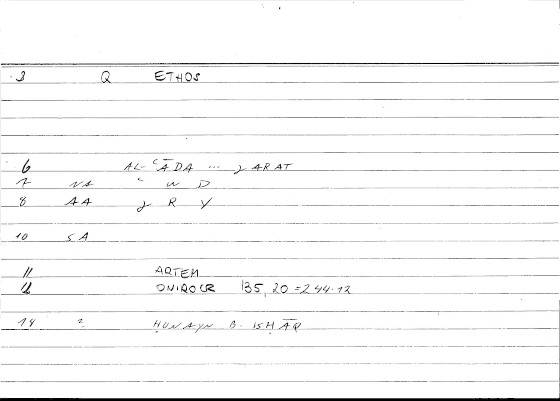 3 Q ETHOS
6 AL-ʿĀDA ... ǧARAT
7 NA ʿ W D
8 AA ǧ R Y
10 SA
11 ARTEM
12 ONIROCR 135, 20 = 244.12
14 2 ḤUNAYN B. ISḤĀQ